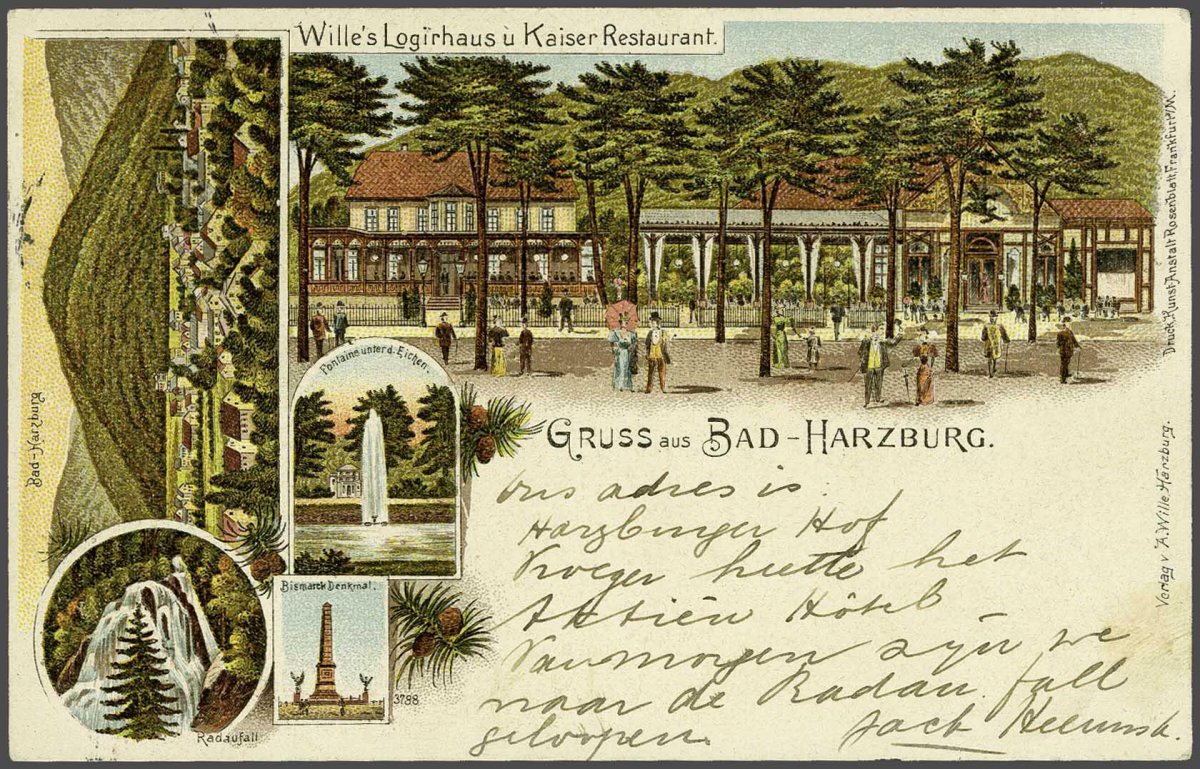 Wille's Logirhaus ù Kaiser Restaurant.
Bad-Harzburg
Fontaine unter d. Eichen.
GRUSS AUS BAD-HARZBURG.
Bismarck Denkmal.
3788
Radaufall
ons adres is.
Harzburger Hof
Vroeger heette het
Aktiën Hôtel
Van morgen zyn we
naar de Radau fall
geloopen.
Druck. Kunst-Anstalt Rosenblatt, Frankfurt ᵃ/M.
Verlag v. A. Wille, Harzburg.